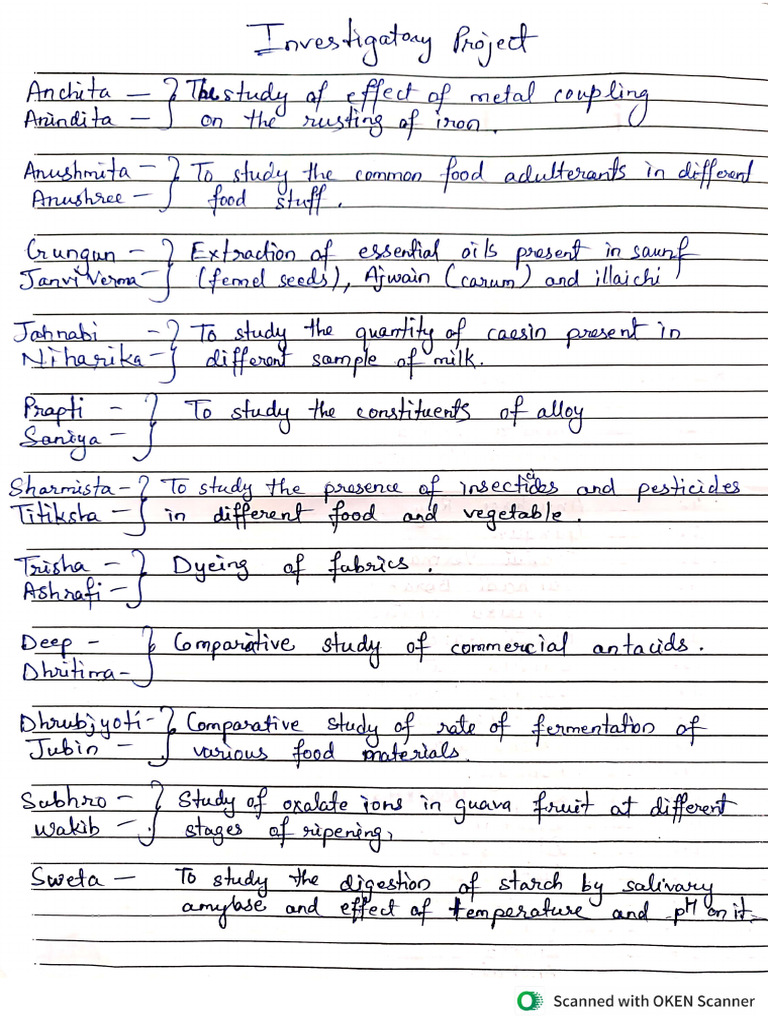 Investigatory Project
Anchita — } The study of effect of metal coupling
Arundita — on the rusting of iron.
Anushmita — } To study the common food adulterants in different
Anushree — food stuff.
Gungun — } Extraction of essential oils present in saunf
Janvi Verma — (femel seeds), Ajwain (carum) and illaichi
Jahnabi — } To study the quantity of caesin present in
Niharika — different sample of milk.
Prapti — } To study the constituents of alloy
Saniya —
Sharmista — } To study the presence of insecticides and pesticides
Titiksha — in different food and vegetable.
Trisha — } Dyeing of fabrics.
Ashrafi —
Deep — } Comparative study of commercial antacids.
Dhritima —
Dhrubjyoti — } Comparative study of rate of fermentation of
Jubin — various food materials.
Subhro — } Study of oxalate ions in guava fruit at different
Wakib — stages of ripening,
Sweta — To study the digestion of starch by salivary
amylase and effect of temperature and pH on it.
Scanned with OKEN Scanner